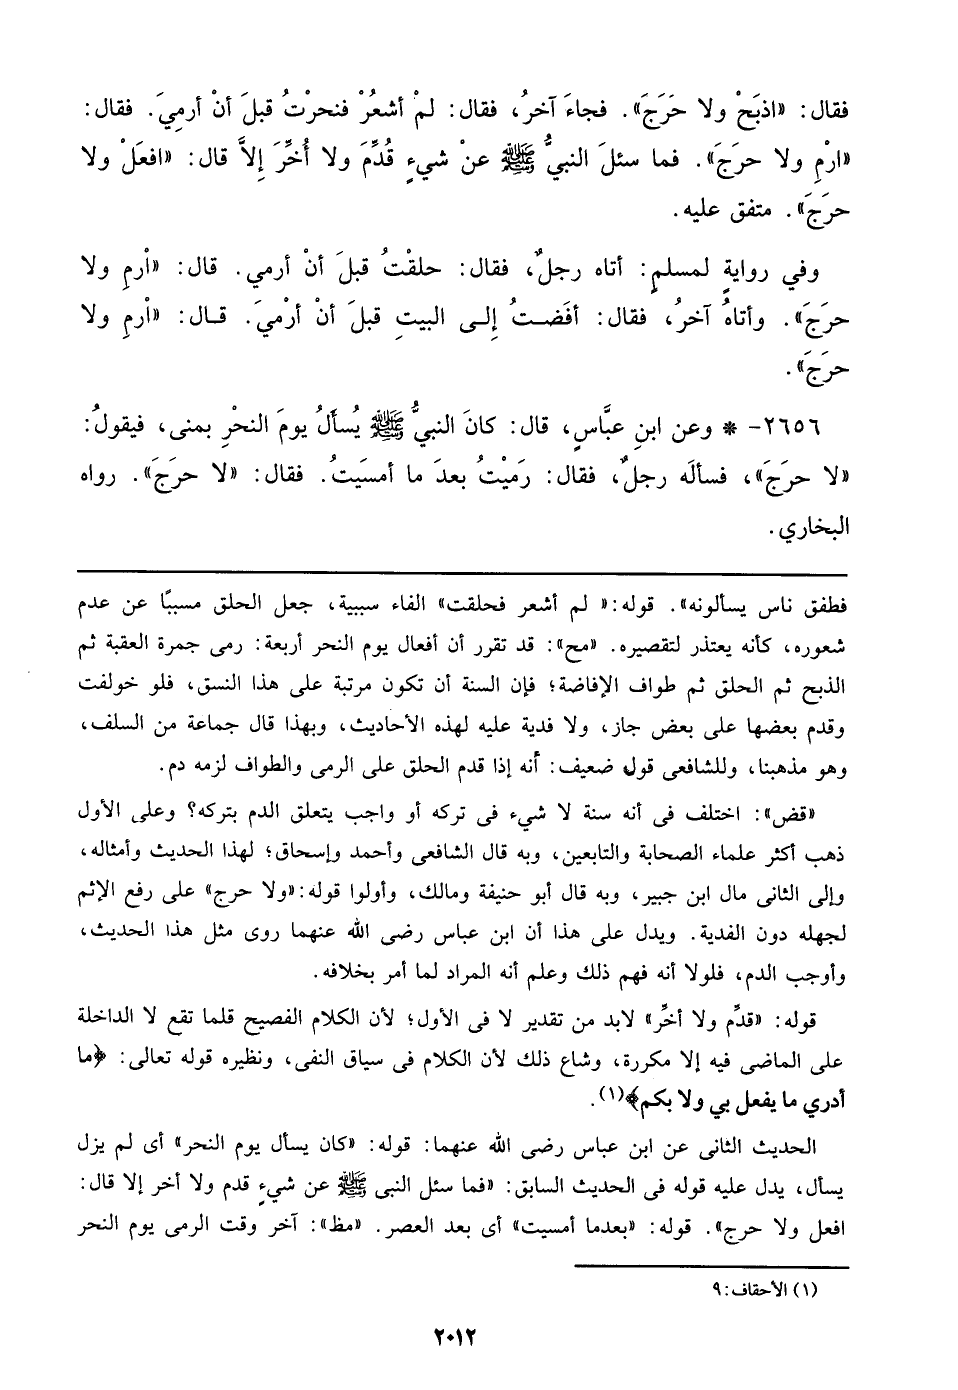 فقال: «اذبَحْ ولا حَرَجَ». فجاءَ آخرُ، فقال: لمْ أشعُرْ فنحرْتُ قبلَ أنْ أرميَ. فقال:
«ارْمِ ولا حرَجَ». فما سئلَ النبيُّ ﷺ عنْ شيءٍ قُدِّمَ ولا أُخِّرَ إِلاَّ قال: «افعَلْ ولا
حرَجَ». متفق عليه.
وفي روايةٍ لمسلمٍ: أتاه رجلٌ، فقال: حلقْتُ قبلَ أنْ أرمي. قال: «أرمِ ولا
حَرَجَ». وأتاهُ آخرُ، فقال: أفَضتُ إِلى البيتِ قبلَ أنْ أرْميَ. قال: «أرمِ ولا
حرَجَ».
٢٦٥٦- * وعن ابنِ عبَّاسٍ، قال: كانَ النبيُّ ﷺ يُسأَلُ يومَ النحْرِ بمنى، فيقولُ:
«لا حرَجَ»، فسألَه رجلٌ، فقال: رَميْتُ بعدَ ما أمسَيتُ. فقال: «لا حرَجَ». رواه
البخاري.
فطفق ناس يسألونه». قوله:« لم أشعر فحلقت» الفاء سببية، جعل الحلق مسببًا عن عدم
شعوره، كأنه يعتذر لتقصيره. «مح»: قد تقرر أن أفعال يوم النحر أربعة: رمى جمرة العقبة ثم
الذبح ثم الحلق ثم طواف الإفاضة؛ فإن السنة أن تكون مرتبة على هذا النسق، فلو خولفت
وقدم بعضها على بعض جاز، ولا فدية عليه لهذه الأحاديث، وبهذا قال جماعة من السلف،
وهو مذهبنا، وللشافعى قول ضعيف: أنه إذا قدم الحلق على الرمى والطواف لزمه دم.
«قض»: اختلف فى أنه سنة لا شيء فى تركه أو واجب يتعلق الدم بتركه؟ وعلى الأول
ذهب أكثر علماء الصحابة والتابعين، وبه قال الشافعى وأحمد وإسحاق؛ لهذا الحديث وأمثاله،
وإلى الثانى مال ابن جبير، وبه قال أبو حنيفة ومالك، وأولوا قوله:«ولا حرج» على رفع الإثم
لجهله دون الفدية. ويدل على هذا أن ابن عباس رضى الله عنهما روى مثل هذا الحديث،
وأوجب الدم، فلولا أنه فهم ذلك وعلم أنه المراد لما أمر بخلافه.
قوله: «قدِّم ولا أخِّر» لابد من تقدير لا فى الأول؛ لأن الكلام الفصيح قلما تقع لا الداخلة
على الماضى فيه إلا مكررة، وشاع ذلك لأن الكلام فى سياق النفى، ونظيره قوله تعالى: ﴿ما
أدري ما يفعل بي ولا بكم﴾(١).
الحديث الثانى عن ابن عباس رضى الله عنهما: قوله: «كان يسأل يوم النحر» أى لم يزل
يسأل، يدل عليه قوله فى الحديث السابق: «فما سئل النبى ﷺ عن شيءٍ قدم ولا أخر إلا قال:
افعل ولا حرج». قوله: «بعدما أمسيت» أى بعد العصر. «مظ»: آخر وقت الرمى يوم النحر
(١) الأحقاف: ٩
٢٠١٢